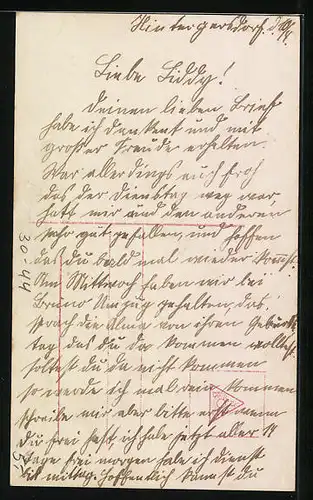 Hintergersdorf, d.
Liebe Liddy!
Deinen lieben Brief
habe ich dankent und mit
großer Freude erhalten.
War allerdings auch froh
das der Dienstag weg war,
hatt mir und den anderen
sehr gut gefallen, und hoffen
das du bald mal wieder komst.
Am Mittwoch haben wir bei
Bruno Umzug gehalten, das
sprach die Alma von ihren Geburts
tag das du da kommen wolltest.
soltest du da nicht kommen
so werde ich mal rein kommen
schreibe mir aber bitte erst wenn
du frei hast, ich habe jetzt aber 11
Tage frei morgen habe ich dienst
bis mittag. hoffentlich kannst du
30-44